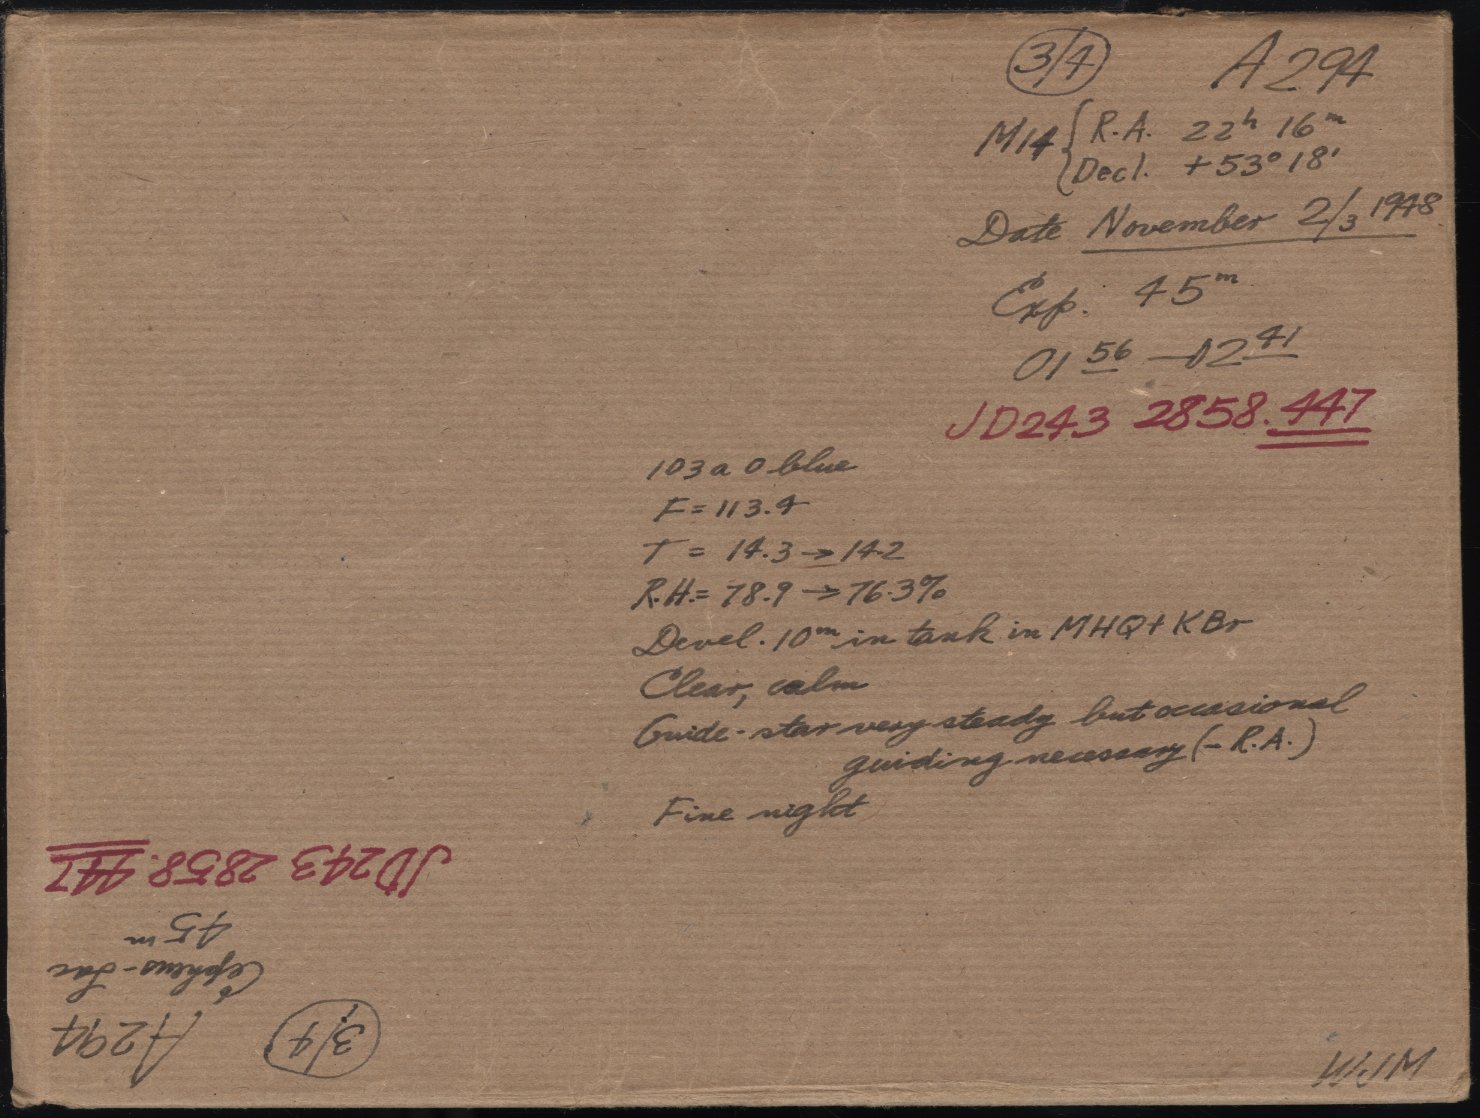 3/4 A294
M14 { R.A. 22h 16m
Decl. +53° 18'
Date November 2/3 1948
Exp. 45m
01 56 — 02 41
JD243 2858.447
103a O blue
F = 113.4
T = 14.3 → 14.2
R.H. = 78.9 → 76.3%
Devel. 10m in tank in MHQ + KBr
Clear, calm
Guide-star very steady but occasional
guiding necessary (– R.A.)
Fine night
3/4 A294
Cepheus-Lac
45m
JD243 2858.447
WJM